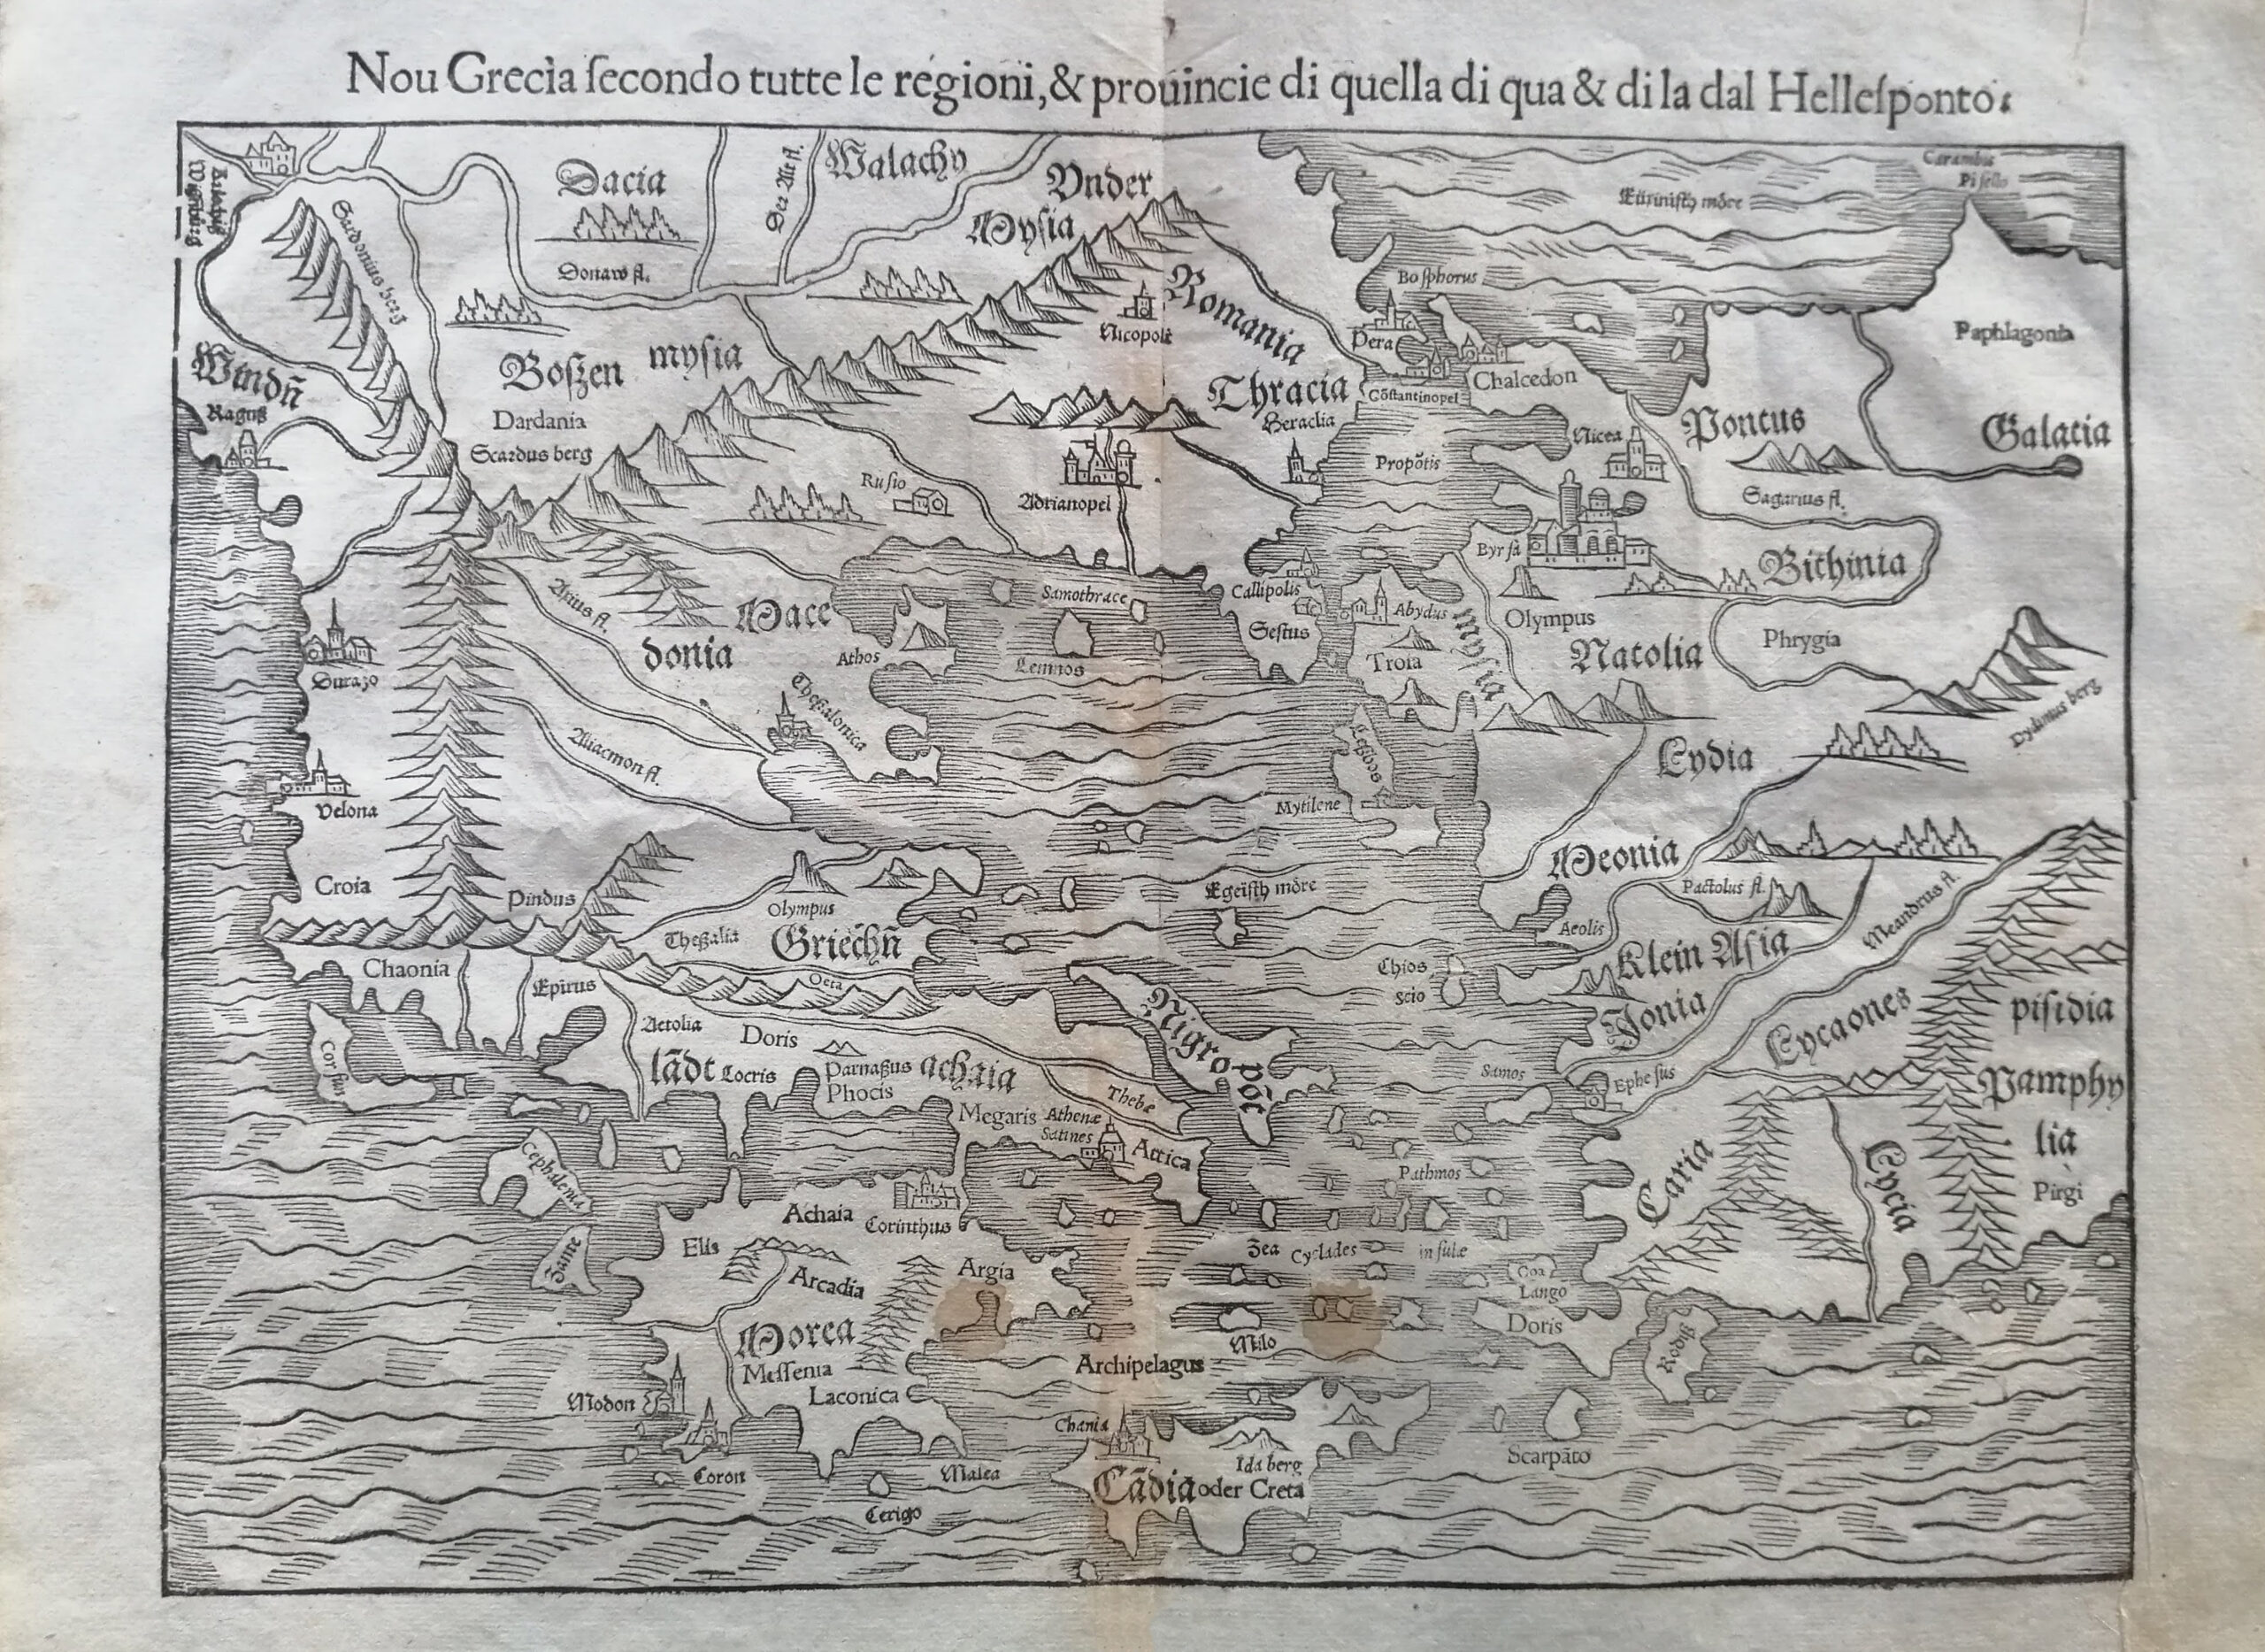 Nou Grecia ſecondo tutte le regioni, & prouincie di quella di qua & di la dal Helleſponto.
Dacia
Der Alt fl.
Walachy
Vnder
Mysia
Carambis
Piſello
Eüxiniſch möre
Sardonius berg
Donaw fl.
Romania
Nicopoli
Boſphorus
Pera
Paphlagonia
Windn̄
Raguß
Boſzen
myſia
Dardania
Scardus berg
Thracia
Heraclia
Cõſtantinopel
Chalcedon
Pontus
Galatia
Nicea
Propõtis
Ruſio
Adrianopel
Sagarius fl.
Byrſa
Bithinia
Axius fl.
Mace
donia
Athos
Samothrace
Lemnos
Callipolis
Seſtus
Abydus
Troia
myſia
Olympus
Natolia
Phrygia
Durazo
Theßalonica
Dydimus berg
Aliacmon fl.
Lesbos
Mytilene
Lydia
Velona
Croia
Pindus
Olympus
Theßalia
Griechn̄
Egeiſch möre
Meonia
Pactolus fl.
Meandrus fl.
Aeolis
Klein Aſia
Chaonia
Epirus
Oeta
Chios
Scio
Jonia
Lycaones
piſidia
Corfun
Aetolia
Doris
lãdt
Locris
Parnaßus
Phocis
achaia
Nigro
põt
Samos
Epheſus
Pamphy
lia
Pirgi
Thebæ
Megaris
Athenæ
Satines
Attica
Pathmos
Caria
Lycia
Cephalenia
Achaia
Corinthus
Zea
Cyclades
inſulæ
Zante
Elis
Arcadia
Argia
Coa
Lango
Doris
Morea
Meſſenia
Laconica
Milo
Archipelagus
Rodiß
Modon
Coron
Malea
Cerigo
Chania
Ida berg
Cãdia oder Creta
Scarpãto